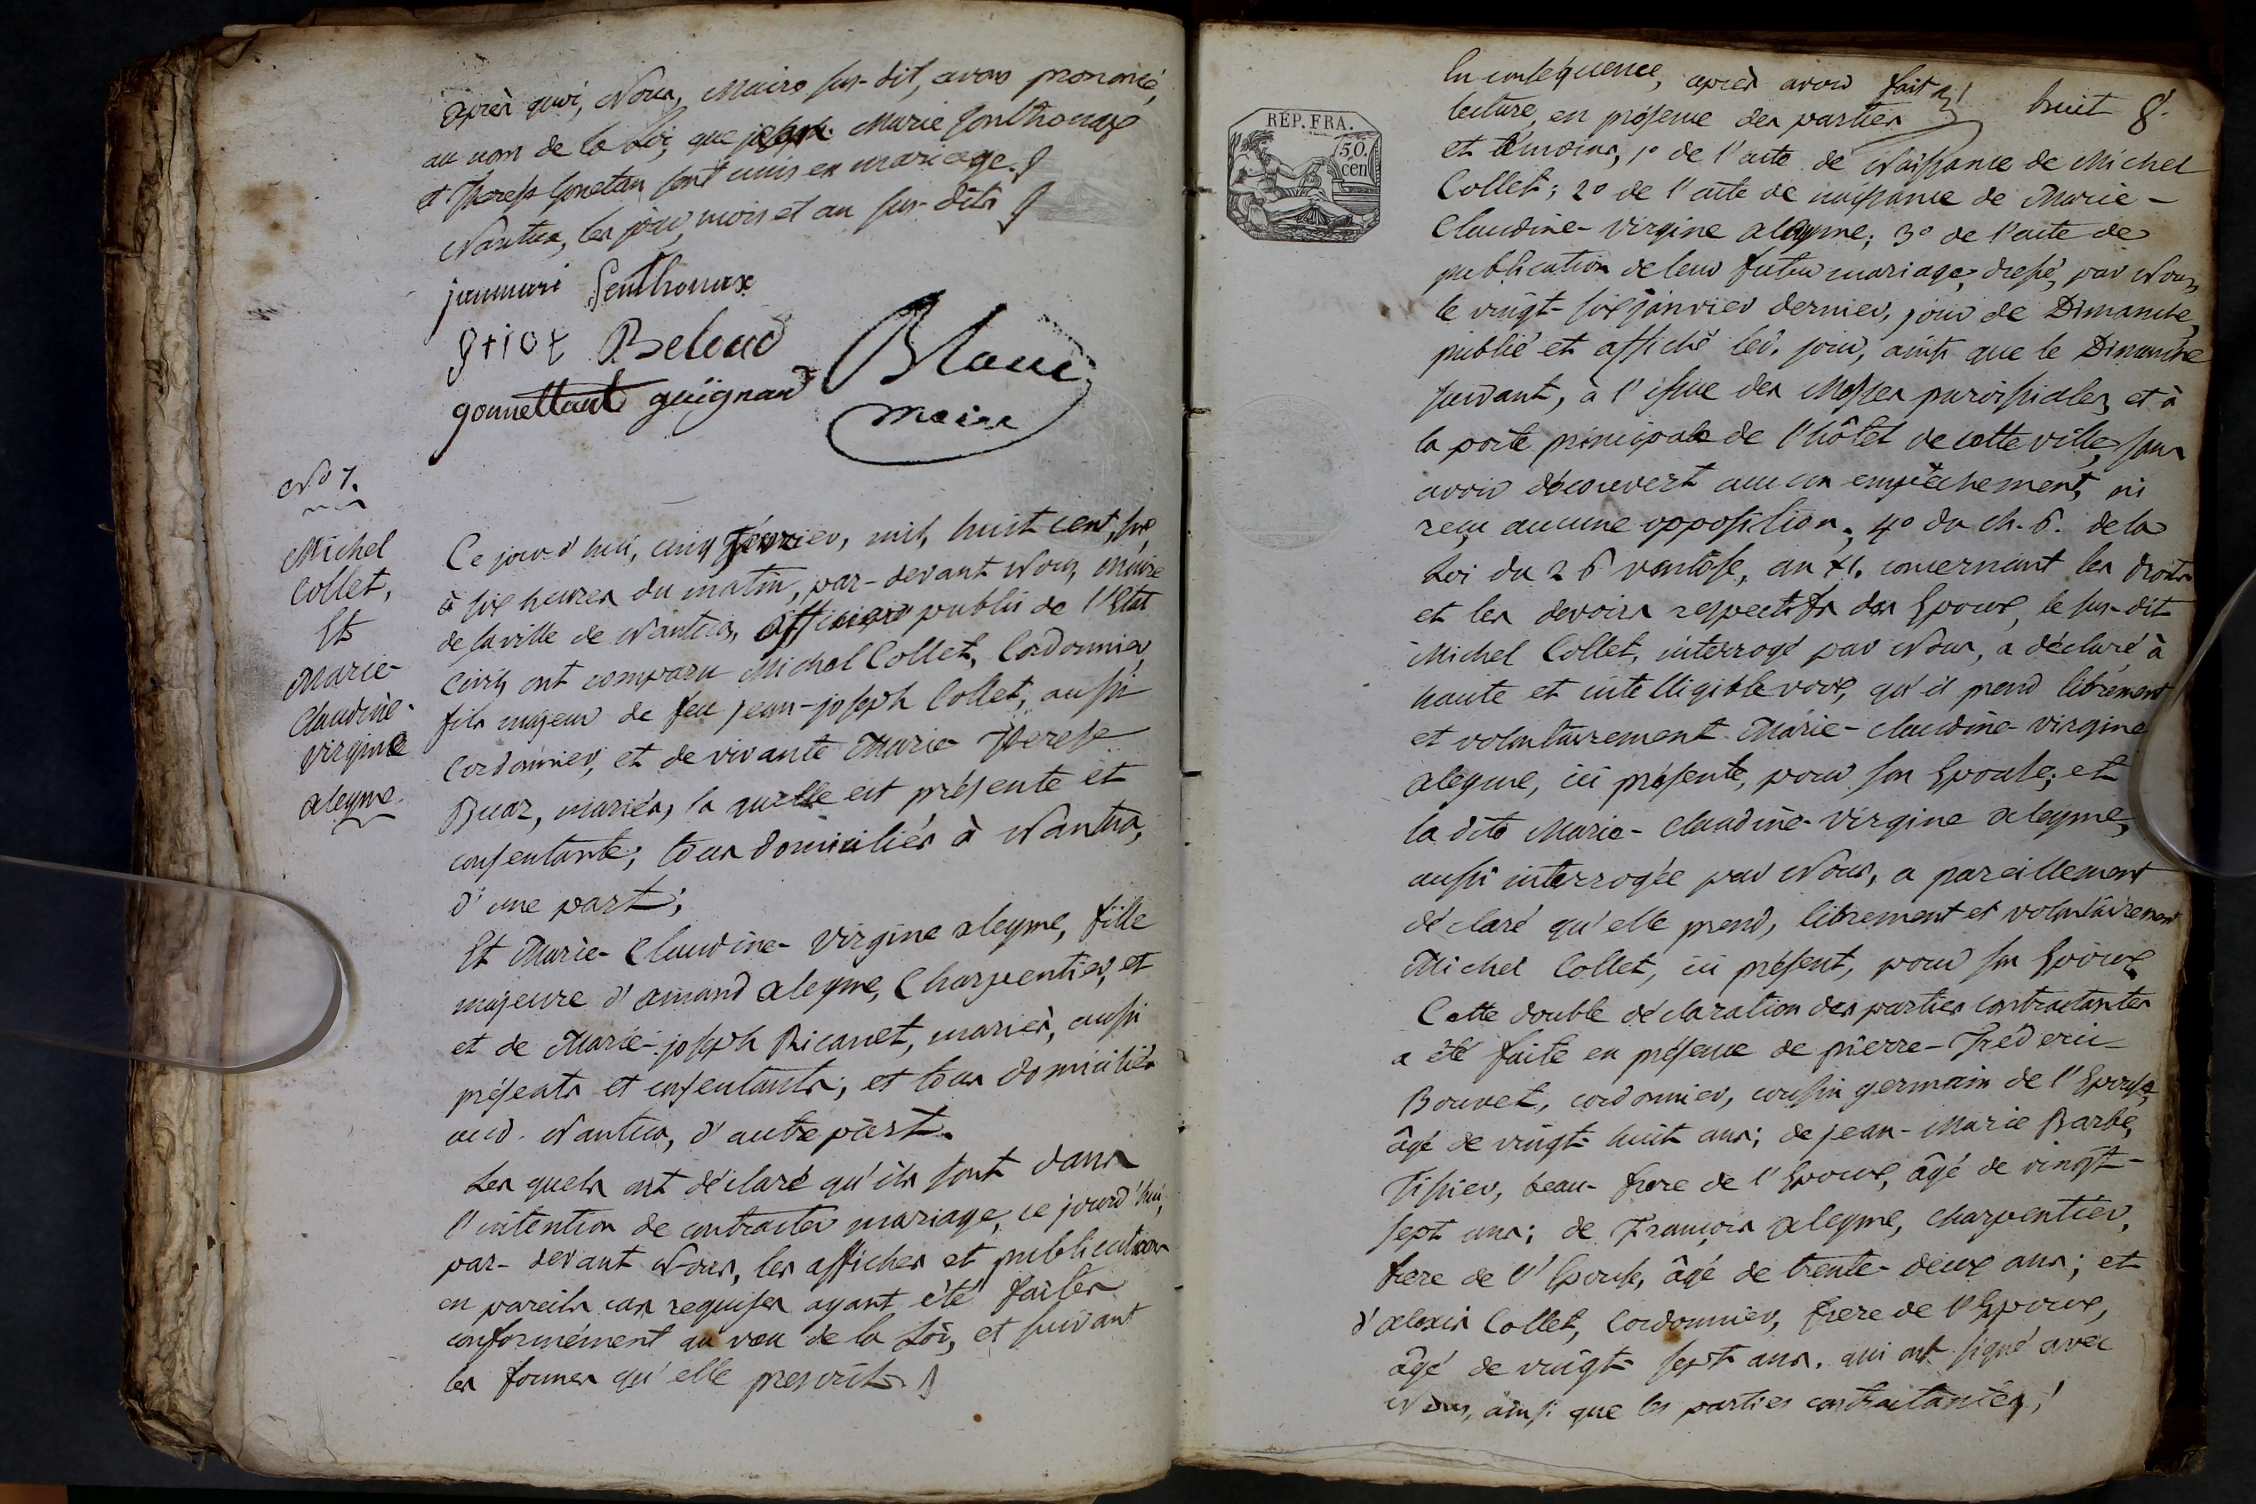 après quoi, Nous, Maire sus-dit, avons prononcé,
au nom de la Loi, que Marie Jonthoux
et Therese Gonetan sont unis en mariage.
Nantua, les jour, mois et an sus-dits
janmari Senthonax
griot Beloud
Blanc
gonnettant guignard
maire
No 7.
Michel
Collet,
Et
Marie-
Claudine-
Virgine
aleyme.
Ce jourd'hui, cinq février, mil huit cent six,
à six heures du matin, par-devant Nous, Maire
de la ville de Nantua, officier public de l'Etat
Civil, ont comparu Michel Collet, Cordonnier,
fils majeur de feu jean-joseph Collet, aussi
Cordonnier, et de vivante Marie Therese
Buaz, mariés, la quelle est présente et
consentante; tous domiciliés à Nantua,
d'une part;
Et Marie-Claudine-Virgine aleyme, fille
majeure d'amand aleyme, Charpentier, et
et de Marie-joseph Ricanet, mariés, aussi
présents et consentants; et tous domiciliés
aud. Nantua, d'autre part.
Les quels ont déclaré qu'ils sont dans
l'intention de contracter mariage, ce jourd'hui,
par-devant Nous, les affiches et publications
en pareils cas requises ayant été faites
conformément au vœu de la Loi, et suivant
les formes qu'elle prescrit.
huit 8.
RÉP. FRA.
50.
cen
En conséquence, après avoir fait
lecture, en présence des parties
et témoins, 1o de l'acte de Naissance de Michel
Collet; 2o de l'acte de naissance de Marie-
Claudine-Virgine aleyme; 3o de l'acte de
publication de leur futur mariage, dressé, par Nous,
le vingt-six janvier dernier, jour de Dimanche,
publié et affiché led. jour, ainsi que le Dimanche
suivant, à l'issue des Messes paroissiales, et à
la porte principale de l'hôtel de cette ville, sans
avoir découvert aucun empêchement, ni
reçu aucune opposition; 4o du ch. 6. de la
Loi du 26 ventôse, an XI. concernant les droits
et les devoirs respectifs des Epoux, le sus-dit
Michel Collet, interrogé par Nous, a déclaré à
haute et intelligible voix, qu'il prend librement
et volontairement Marie-Claudine-Virgine
aleyme, ici présente, pour son Epouse; et
la dite Marie-Claudine-Virgine aleyme,
aussi interrogée par Nous, a pareillement
déclaré qu'elle prend, librement et volontairement
Michel Collet, ici présent, pour son Epoux.
Cette double déclaration des parties contractantes
a été faite en présence de pierre-Frédéric
Bouvet, cordonnier, cousin germain de l'Epouse,
âgé de vingt-huit ans; de jean-Marie Barbe,
Tissier, beau-frere de l'Epoux, âgé de vingt-
sept ans; de François aleyme, Charpentier,
frere de l'Epouse, âgé de trente-deux ans; et
d'alexis Collet, Cordonnier, frere de l'Epoux,
âgé de vingt-sept ans, qui ont signé avec
Nous, ainsi que les parties contractantes,